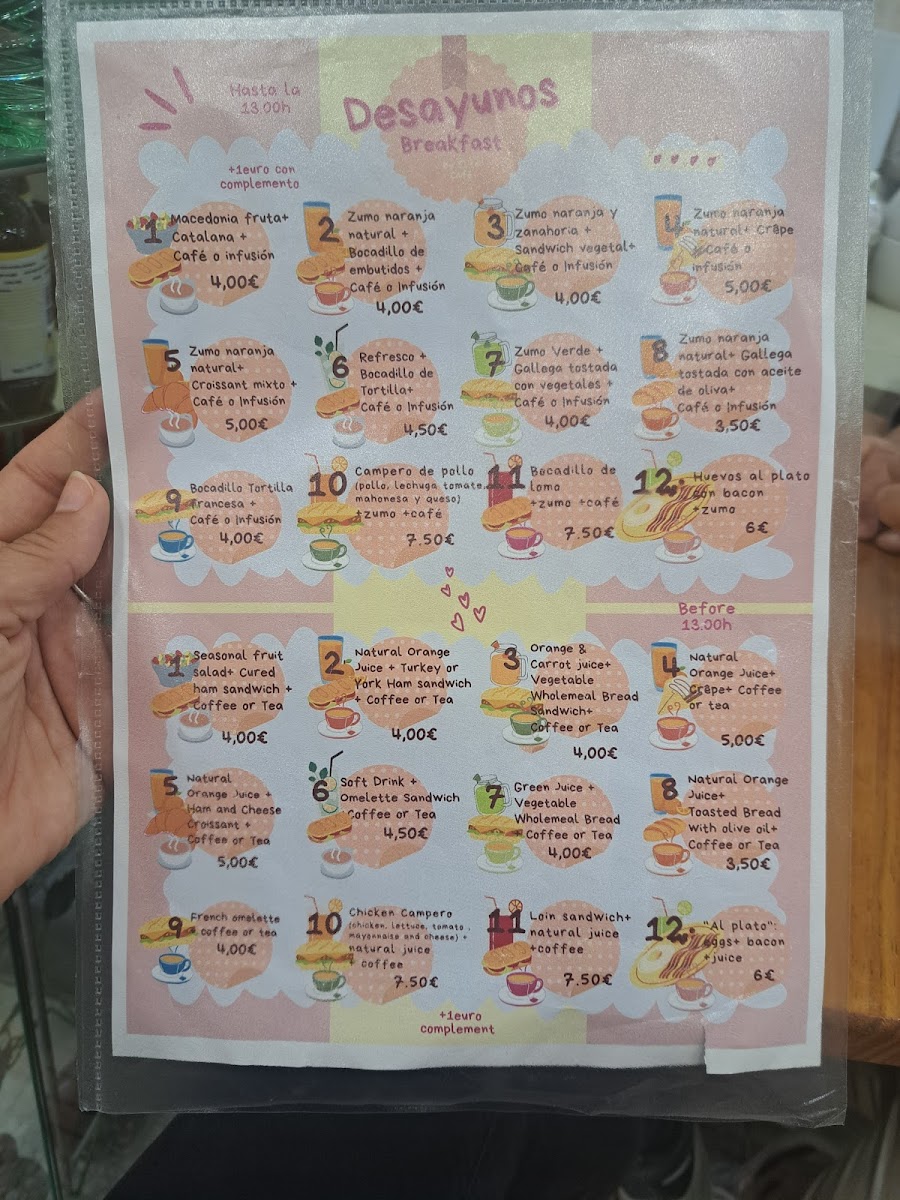 Hasta la
13.00h
Desayunos
Breakfast
café
+1euro con
complemento
1
Macedonia fruta+
Catalana +
Café o infusión
4,00€
2
Zumo naranja
natural +
Bocadillo de
embutidos +
Café o Infusión
4,00€
3
Zumo naranja y
zanahoria +
Sandwich vegetal+
Café o Infusión
4,00€
4
Zumo naranja
natural+ Crêpe
+Café o
infusión
5,00€
5
Zumo naranja
natural+
Croissant mixto +
Café o Infusión
5,00€
6
Refresco +
Bocadillo de
Tortilla+
Café o Infusión
4,50€
7
Zumo Verde +
Gallega tostada
con vegetales +
Café o Infusión
4,00€
8
Zumo naranja
natural+ Gallega
tostada con aceite
de oliva+
Café o Infusión
3,50€
9
Bocadillo Tortilla
francesa +
Café o Infusión
4,00€
10
Campero de pollo
(pollo, lechuga tomate,
mahonesa y queso)
+zumo +café
7.50€
11
Bocadillo de
lomo
+zumo +café
7.50€
12
Huevos al plato
con bacon
+zumo
6€
Before
13.00h
1
Seasonal fruit
salad+ Cured
ham sandwich +
Coffee or Tea
4,00€
2
Natural Orange
Juice + Turkey or
York Ham sandwich
+ Coffee or Tea
4,00€
3
Orange &
Carrot juice+
Vegetable
Wholemeal Bread
Sandwich+
Coffee or Tea
4,00€
4
Natural
Orange Juice+
Crêpe+ Coffee
or tea
5,00€
5
Natural
Orange Juice +
Ham and Cheese
Croissant +
Coffee or Tea
5,00€
6
Soft Drink +
Omelette Sandwich
Coffee or Tea
4,50€
7
Green Juice +
Vegetable
Wholemeal Bread
+ Coffee or Tea
4,00€
8
Natural Orange
Juice+
Toasted Bread
With olive oil+
Coffee or Tea
3,50€
9
French omelette
+ coffee or tea
4,00€
10
Chicken Campero
(chicken, lettuce, tomato ,
mayonnaise and cheese) +
natural juice
+ coffee
7.50€
11
Loin sandwich+
natural juice
+coffee
7.50€
12
"Al plato":
eggs+ bacon
+juice
6€
+1euro
complement